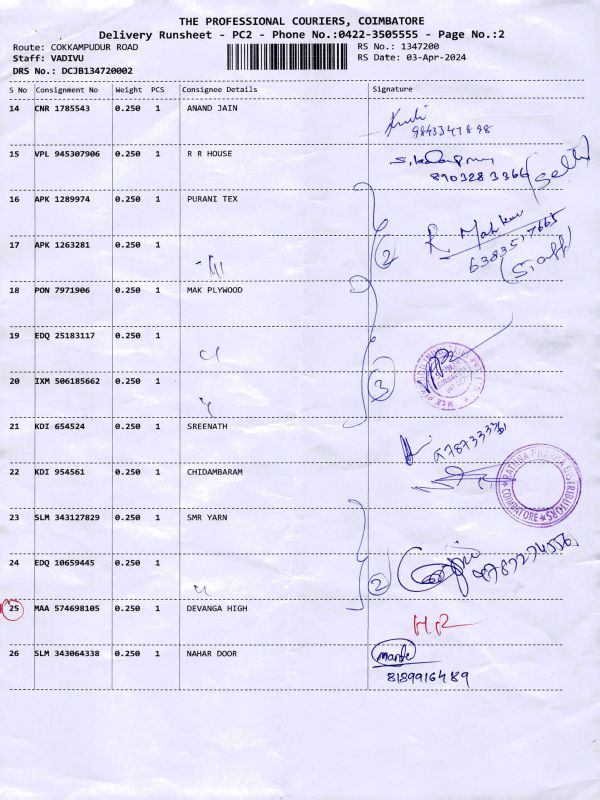 THE PROFESSIONAL COURIERS, COIMBATORE
Delivery Runsheet - PC2 - Phone No.:0422-3505555 - Page No.:2
Route: COKKAMPUDUR ROAD RS No.: 1347200
Staff: VADIVU RS Date: 03-Apr-2024
DRS No.: DCJB134720002
S No Consignment No Weight PCS Consignee Details Signature
14 CNR 1785543 0.250 1 ANAND JAIN
9843347898
15 VPL 945307906 0.250 1 R R HOUSE
8903283366
16 APK 1289974 0.250 1 PURANI TEX
17 APK 1263281 0.250 1
2
6383517665
18 PON 7971906 0.250 1 MAK PLYWOOD
19 EDQ 25183117 0.250 1
20 IXM 506185662 0.250 1
3
21 KDI 654524 0.250 1 SREENATH
22 KDI 954561 0.250 1 CHIDAMBARAM
COIMBATORE
23 SLM 343127829 0.250 1 SMR YARN
24 EDQ 10659445 0.250 1
2
25 MAA 574698105 0.250 1 DEVANGA HIGH
26 SLM 343064338 0.250 1 NAHAR DOOR
8189916489